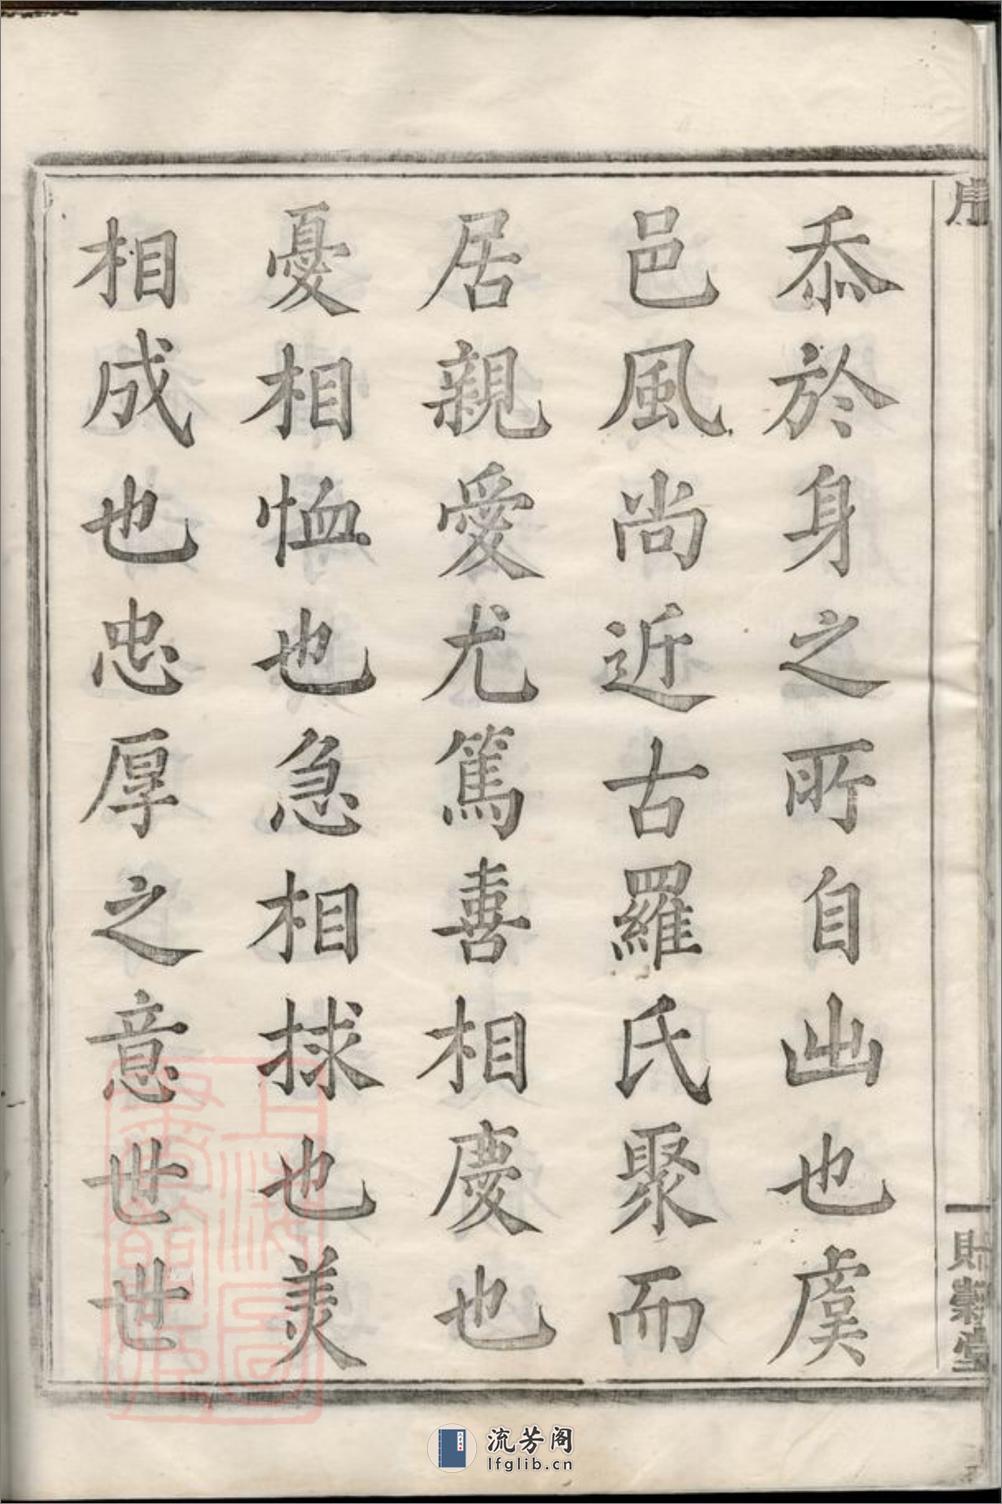 序
忝於身之所自出也虞
邑風尚近古羅氏聚而
居親愛尤篤喜相慶也
憂相恤也急相捄也美
相成也忠厚之意世世
貽穀堂
流芳阁
lfglib.cn